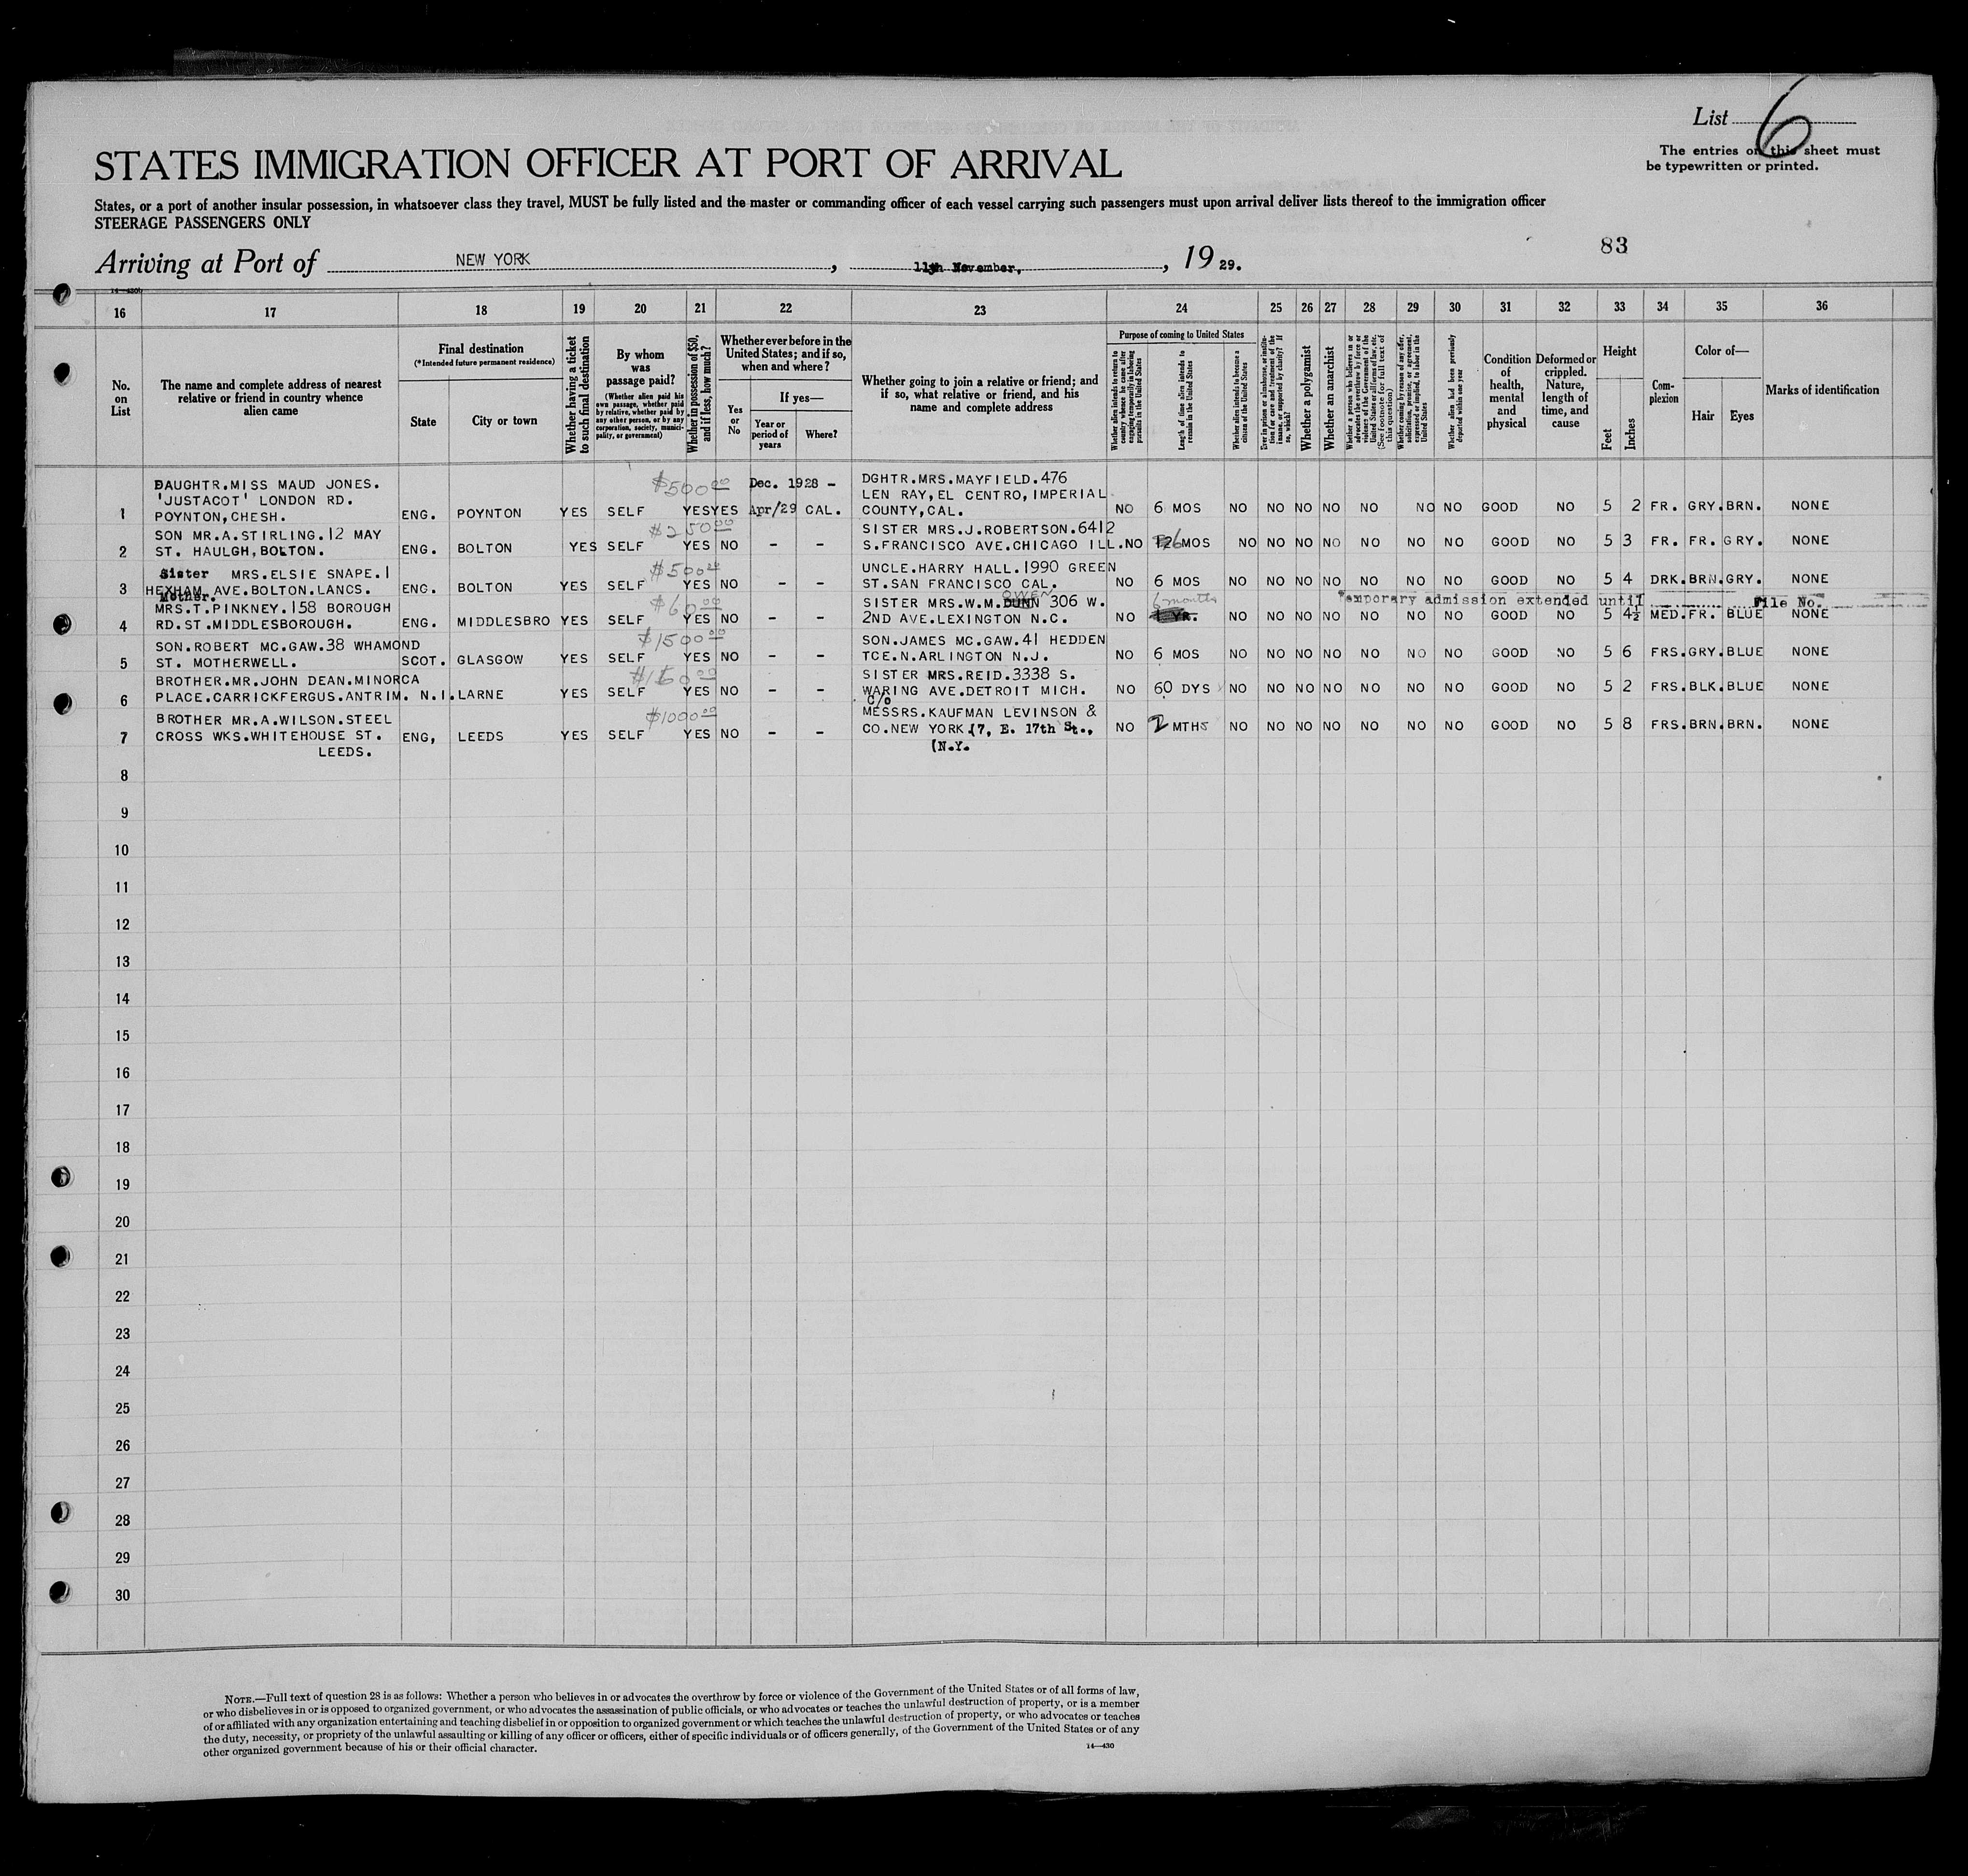 List 6
The entries on this sheet must
be typewritten or printed.
STATES IMMIGRATION OFFICER AT PORT OF ARRIVAL
States, or a port of another insular possession, in whatsoever class they travel, MUST be fully listed and the master or commanding officer of each vessel carrying such passengers must upon arrival deliver lists thereof to the immigration officer
STEERAGE PASSENGERS ONLY
83
Arriving at Port of NEW YORK, 11th November, 19 29.
14—430b
16 17 18 19 20 21 22 23 24 25 26 27 28 29 30 31 32 33 34 35 36
No. on List
The name and complete address of nearest relative or friend in country whence alien came
Final destination
(*Intended future permanent residence)
State
City or town
Whether having a ticket to such final destination
By whom was passage paid?
(Whether alien paid his own passage, whether paid by relative, whether paid by any other person, or by any corporation, society, municipality, or government)
Whether in possession of $50, and if less, how much?
Whether ever before in the United States; and if so, when and where?
Yes or No
If yes—
Year or period of years
Where?
Whether going to join a relative or friend; and if so, what relative or friend, and his name and complete address
Purpose of coming to United States
Whether alien intends to return to country whence he came after engaging temporarily in laboring pursuits in the United States
Length of time alien intends to remain in the United States
Whether alien intends to become a citizen of the United States
Ever in prison or almshouse, or institution for care and treatment of the insane, or supported by charity? If so, which?
Whether a polygamist
Whether an anarchist
Whether a person who believes in or advocates the overthrow by force or violence of the Government of the United States or all forms of law, etc. (See footnote for full text of this question)
Whether coming by reason of any offer, solicitation, promise, or agreement, expressed or implied, to labor in the United States
Whether alien had been previously deported within one year
Condition of health, mental and physical
Deformed or crippled. Nature, length of time, and cause
Height
Feet
Inches
Complexion
Color of—
Hair
Eyes
Marks of identification
DAUGHTR.MISS MAUD JONES. $500 00 Dec. 1928 - DGHTR.MRS.MAYFIELD.476
'JUSTACOT' LONDON RD. LEN RAY,EL CENTRO,IMPERIAL
1 POYNTON,CHESH. ENG. POYNTON YES SELF YES YES Apr/29 CAL. COUNTY,CAL. NO 6 MOS NO NO NO NO NO NO NO GOOD NO 5 2 FR. GRY. BRN. NONE
SON MR.A.STIRLING.12 MAY $250 00 SISTER MRS.J.ROBERTSON.6412
2 ST. HAULGH,BOLTON. ENG. BOLTON YES SELF YES NO - - S.FRANCISCO AVE.CHICAGO ILL. NO 6 MOS NO NO NO NO NO NO NO GOOD NO 5 3 FR. FR. GRY. NONE
Sister MRS.ELSIE SNAPE.1 $500 00 UNCLE.HARRY HALL.1990 GREEN
3 HEXHAM AVE.BOLTON.LANCS. ENG. BOLTON YES SELF YES NO - - ST.SAN FRANCISCO CAL. NO 6 MOS NO NO NO NO NO NO NO GOOD NO 5 4 DRK. BRN. GRY. NONE
Mother. OWEN
MRS.T.PINKNEY.158 BOROUGH $60 00 SISTER MRS.W.M.DUNN 306 W. 6 months Temporary admission extended until File No.
4 RD.ST.MIDDLESBOROUGH. ENG. MIDDLESBRO YES SELF YES NO - - 2ND AVE.LEXINGTON N.C. NO 1 YR. NO NO NO NO NO NO NO GOOD NO 5 4½ MED. FR. BLUE NONE
SON.ROBERT MC.GAW.38 WHAMOND $1500 00 SON.JAMES MC.GAW.41 HEDDEN
5 ST. MOTHERWELL. SCOT. GLASGOW YES SELF YES NO - - TCE.N.ARLINGTON N.J. NO 6 MOS NO NO NO NO NO NO NO GOOD NO 5 6 FRS. GRY. BLUE NONE
BROTHER.MR.JOHN DEAN.MINORCA SISTER MRS.REID.3338 S.
6 PLACE.CARRICKFERGUS.ANTRIM. N.I. LARNE YES SELF YES NO - - WARING AVE.DETROIT MICH. NO 60 DYS NO NO NO NO NO NO NO GOOD NO 5 2 FRS. BLK. BLUE NONE
C/o
BROTHER MR.A.WILSON.STEEL $1000 00 MESSRS.KAUFMAN LEVINSON &
7 CROSS WKS.WHITEHOUSE ST. ENG, LEEDS YES SELF YES NO - - CO.NEW YORK.(7, E. 17th St., NO 2 MTHS NO NO NO NO NO NO NO GOOD NO 5 8 FRS. BRN. BRN. NONE
LEEDS. (N.Y.
8
9
10
11
12
13
14
15
16
17
18
19
20
21
22
23
24
25
26
27
28
29
30
NOTE.—Full text of question 28 is as follows: Whether a person who believes in or advocates the overthrow by force or violence of the Government of the United States or of all forms of law,
or who disbelieves in or is opposed to organized government, or who advocates the assassination of public officials, or who advocates or teaches the unlawful destruction of property, or is a member
of or affiliated with any organization entertaining and teaching disbelief in or opposition to organized government or which teaches the unlawful destruction of property, or who advocates or teaches
the duty, necessity, or propriety of the unlawful assaulting or killing of any officer or officers, either of specific individuals or of officers generally, of the Government of the United States or of any
other organized government because of his or their official character.
14—430